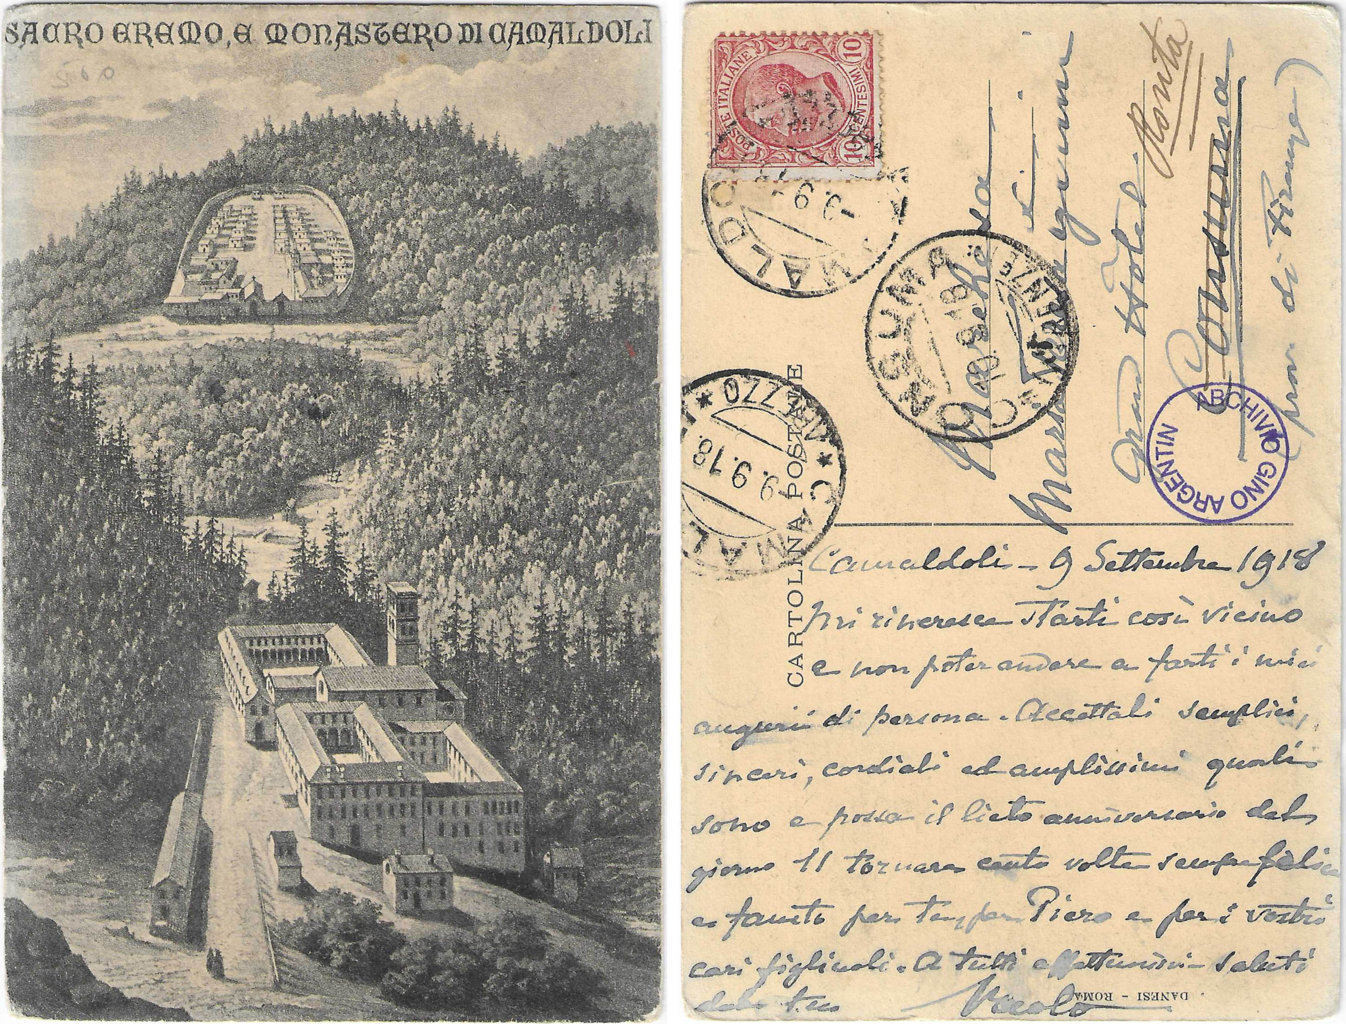 SACRO EREMO, E MONASTERO DI CAMALDOLI
POSTE ITALIANE
10 CENTESIMI 10
CAMALDOLI
-9.9.18
CONSUMA * (FIRENZE) *
10.9.18
CAMALDOLI * AREZZO *
-9.9.18
CARTOLINA POSTALE
Marchesa
Grand Hôtel
Ronta
Consuma
(prov. di Firenze)
ARCHIVIO GINO ARGENTIN
Camaldoli - 9 Settembre 1918
Mi rincresce starti così vicino
e non poter andare a farti i miei
auguri di persona. Accettali semplici,
sinceri, cordiali ed amplissimi quali
sono e possa il lieto anniversario del
giorno 11 tornare cento volte sempre felice
e fausto per te, per Piero e per i vostri
cari figliuoli. A tutti affettuosi saluti
dal tuo Paolo
DANESI - ROMA